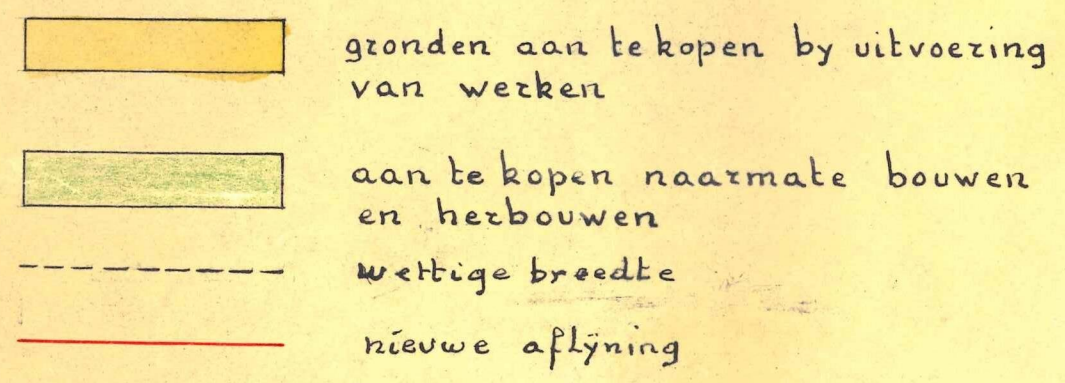 gronden aan te kopen by uitvoering
van werken
aan te kopen naarmate bouwen
en herbouwen
wettige breedte
nieuwe aflÿning